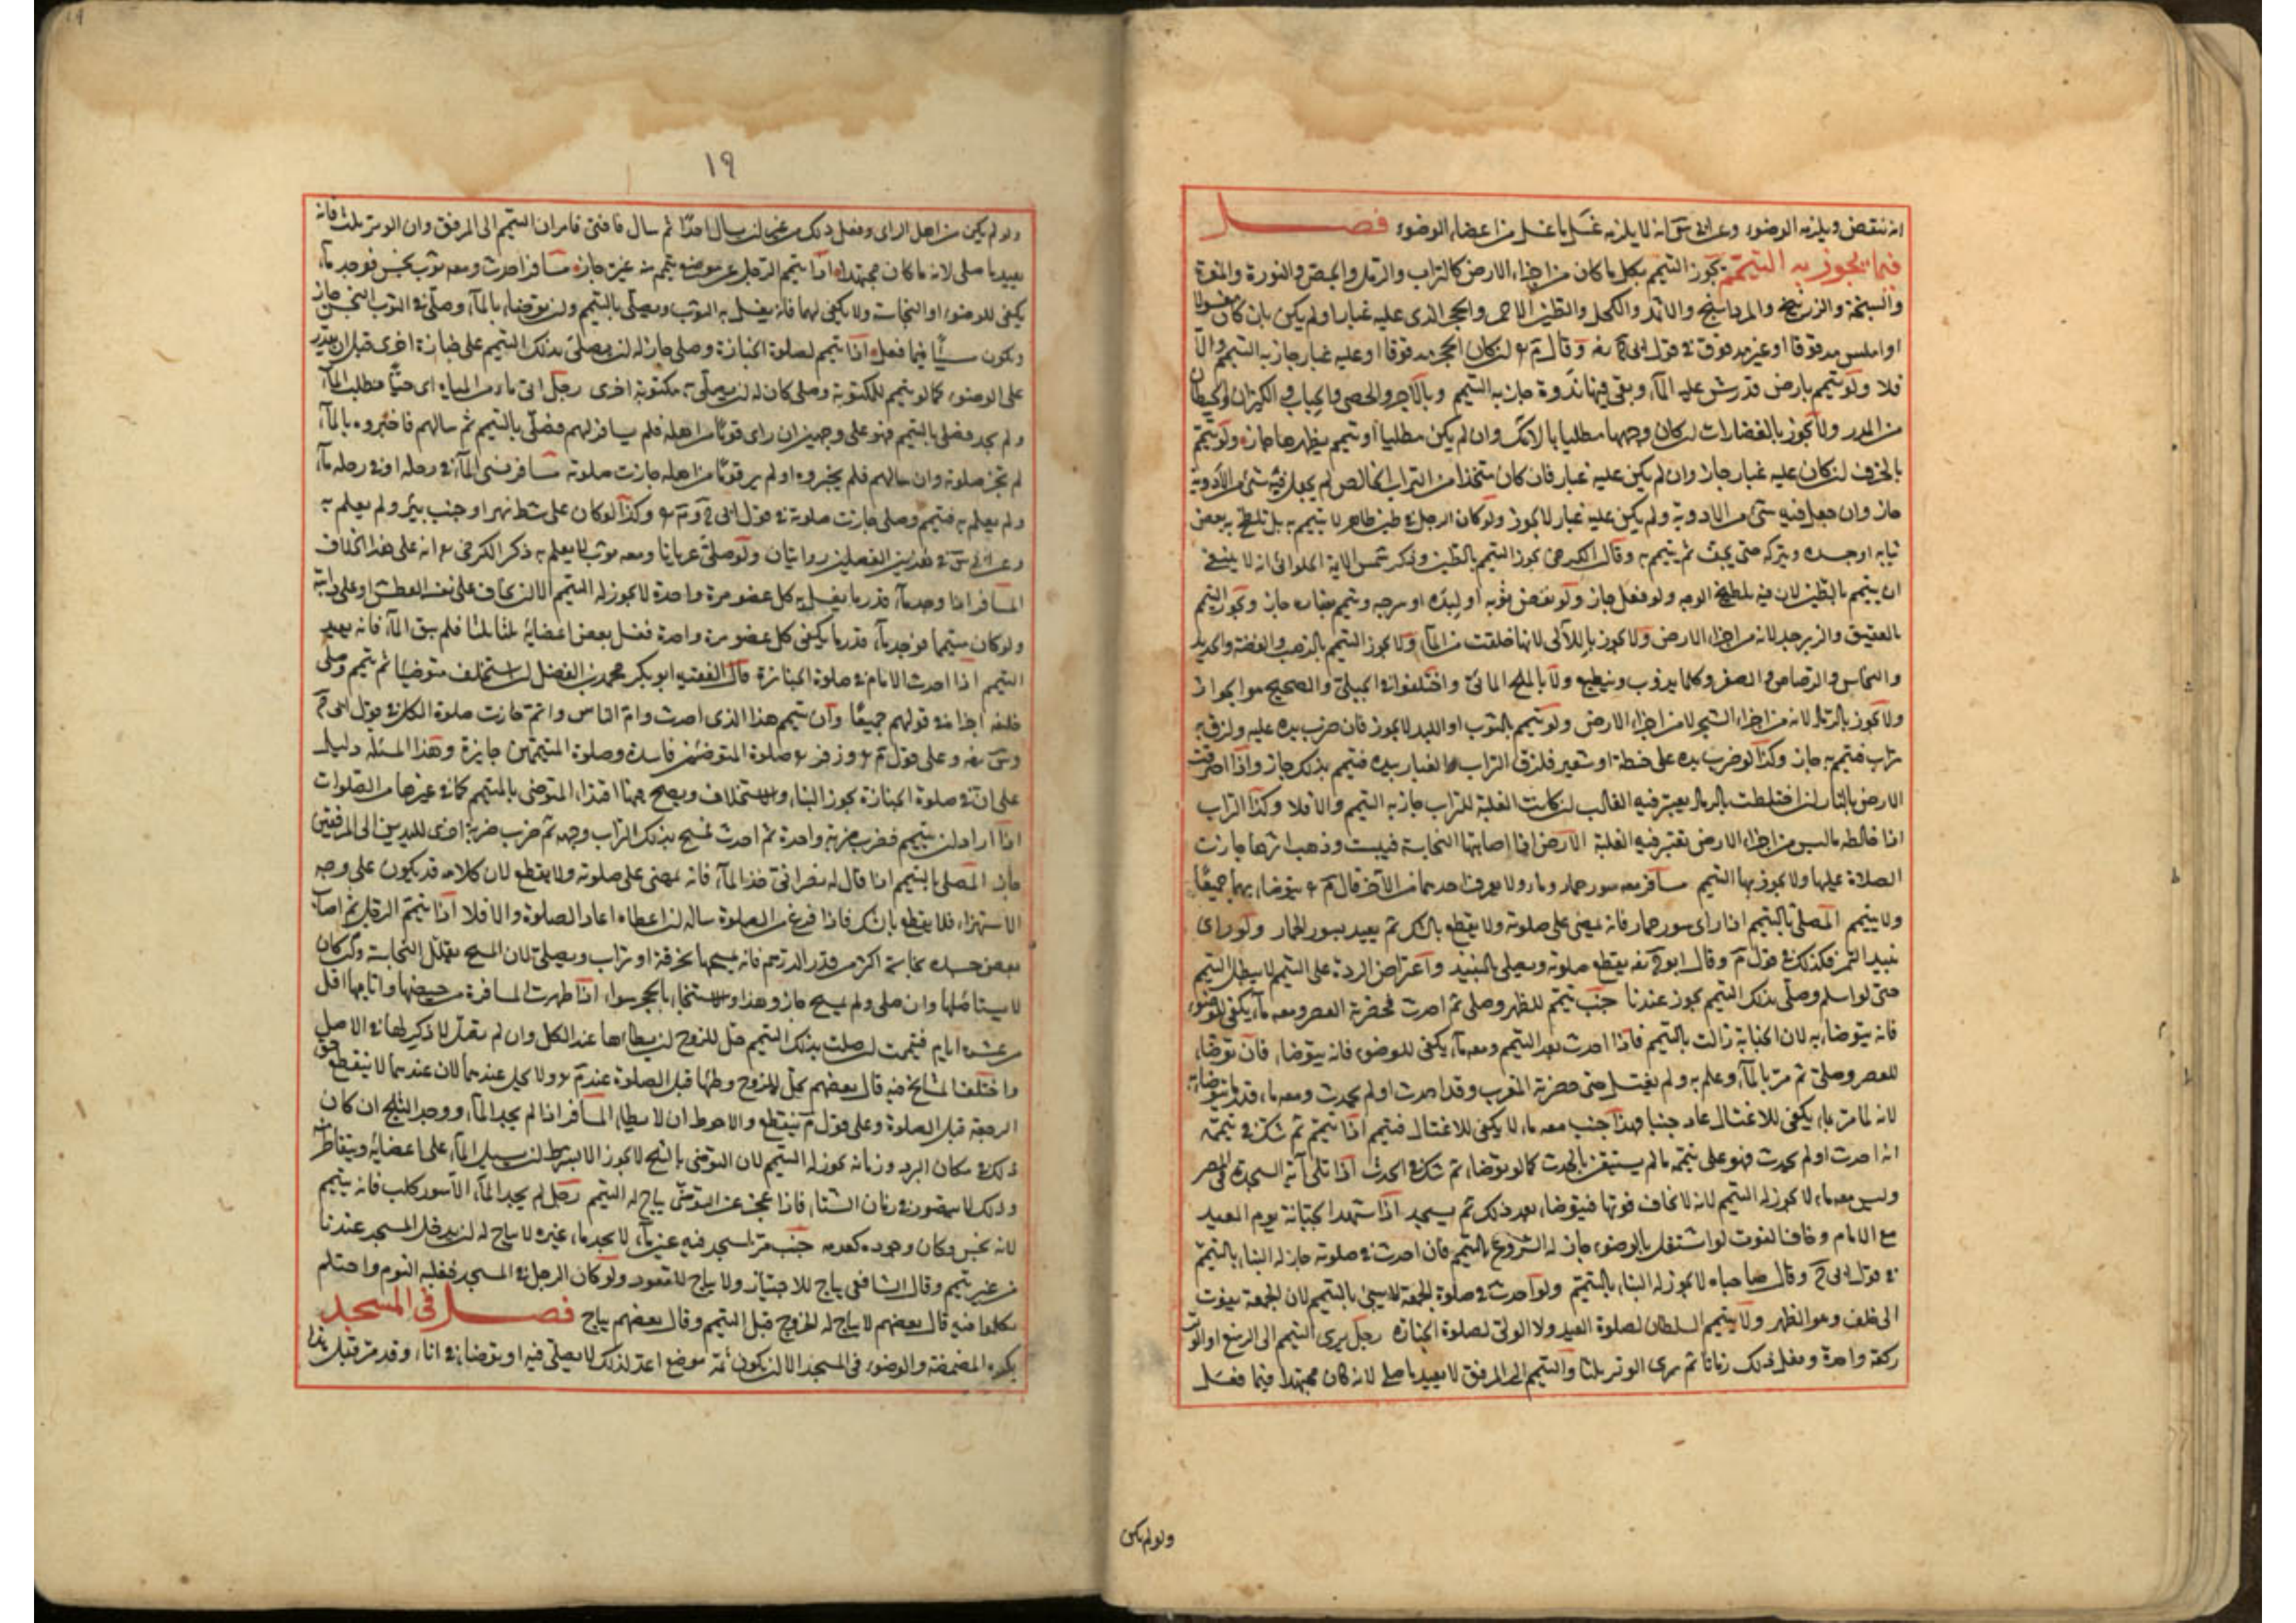 انه ينتقض ويلزمه الوضوء وعن ابى س انه لا يلزمه غسل ما غسل من اعضاء الوضوء فصل
فيما يجوز به التيمم يجوز التيمم بكل ما كان من اجزاء الارض كالتراب والرمل والجص والنورة والمغرة
والسبخة والزرنيخ والمرداسنج والاثمد والكحل والطين الاحمر والحجر الذى عليه غبار او لم يكن بان كان مغسولا
او املس مدقوقا او غير مدقوق فى قول ابى ح رضه وقال م ع ان كان الحجر مدقوقا او عليه غبار جاز به التيمم والا
فلا ولو تيمم بارض قد رش عليه الماء وبقى فيها ندوة جاز به التيمم وبالآجر والحصى والحباب والكيزان والحيطان
من المدر ولا يجوز بالغضارات ان كان وجهها مطليا بالآنك وان لم يكن مطليا او تيمم بظهرها جاز ولو تيمم
بالخزف ان كان عليه غبار جاز وان لم يكن عليه غبار فان كان متخذا من التراب الخالص لم يجعل فيه شئ من الادوية
جاز وان جعل فيه شئ من الادوية ولم يكن عليه غبار لا يجوز ولو كان الرجل فى طين طاهر لا يتيمم به بل تلطخ به بعض
ثيابه او جسده ويتركه حتى يجف ثم يتيمم به وقال الكرخى يجوز التيمم بالطين وذكر شمس الايمة الحلوانى انه لا ينبغى
ان يتيمم بالطين لان فيه تلطيخ الوجه ولو فعل جاز ولو نفض ثوبه او لبده او سرجه وتيمم بغباره جاز ويجوز التيمم
بالعقيق والزبرجد لانه من اجزاء الارض ولا يجوز باللآلى لانها خلقت من الماء ولا يجوز التيمم بالذهب والفضة والحديد
والنحاس والرصاص والصفر وكلما يذوب وينطبع ولا بالملح المائى واختلفوا فى الجبلى والصحيح هو الجواز
ولا يجوز بالرماد لانه من اجزاء الشجر لا من اجزاء الارض ولو تيمم بالثوب او اللبد لا يجوز فان ضرب يده عليه ولزق به
تراب فتيمم به جاز وكذا لو ضرب يده على حنطة او شعير فلزق التراب والغبار بيده فتيمم بذلك جاز واذا احترقت
الارض بالنار ان اختلطت بالرماد يعتبر فيه الغالب ان كانت الغلبة للتراب جاز به التيمم والا فلا وكذا التراب
اذا خالطه ما ليس من اجزاء الارض تعتبر فيه الغلبة الارض اذا اصابتها النجاسة فيبست وذهب اثرها جازت
الصلاة عليها ولا يجوز بها التيمم مسافر معه سور حمار وماء ولا يعرف احدهما من الآخر قال م ع يتوضاء بهما جميعًا
ولا يتيمم المصلى بالتيمم اذا راى سور حمار فانه يمضى على صلوته ولا يقطع بالشك ثم يعيد بسور الحمار ولو راى
نبيذ التمر فكذلك فى قول م وقال ابو ح رضه يقطع صلوته ويصلى بالنبيذ واعتراض الردة على التيمم لا يبطل التيمم
حتى لو اسلم وصلى بذلك التيمم يجوز عندنا جنب تيمم للظهر وصلى ثم احدث فحضرته العصر ومعه ماء يكفى للوضوء
فانه يتوضاء به لان الجنابة زالت بالتيمم فاذا احدث بعد التيمم ومعه ماء يكفى للوضوء فانه يتوضاء فان توضاء
للعصر وصلى ثم مر بالماء وعلم به ولم يغتسل حتى حضرته المغرب وقد احدث او لم يحدث ومعه ماء قدر ما يتوضاء به
لانه لما مر بماء يكفى للاغتسال عاد جنبا فهذا جنب معه ماء لا يكفى للاغتسال فتيمم اذا تيمم ثم شك فى تيممه
انه احدث او لم يحدث فهو على تيممه ما لم يستيقن بالحدث كما لو توضاء ثم شك فى الحدث اذا تلى آية السجدة فى المصر
وليس معه ماء لا يجوز له التيمم لانه لا يخاف فوتها فيتوضاء بعد ذلك ثم يسجد اذا شهد الجبانة يوم العيد
مع الامام وخاف الفوت لو اشتغل بالوضوء جاز له الشروع بالتيمم فان احدث فى صلوته جاز له البناء بالتيمم
فى قول ابى ح وقال صاحباه لا يجوز له البناء بالتيمم ولو احدث فى صلوة الجمعة لا يبنى بالتيمم لان الجمعة يفوت
الى خلف وهو الظهر ولا يتيمم السلطان لصلوة العيد ولا الولى لصلوة الجنازة رجل يرى التيمم الى الرسغ او الوتر
ركعة واحدة وفعل ذلك زمانا ثم يرى الوتر ثلثا والتيمم الى المرفق لا يعيد ما صلى لانه كان مجتهدا فيما فعل
ولو لم يكن
١٩
ولو لم يكن من اهل الراى وفعل ذلك من غير ان يسال احدًا ثم سال فافتى فامر ان التيمم الى المرفق وان الوتر ثلث فانه
يعيد ما صلى لانه ما كان مجتهدا اذا تيمم الرجل عن موضع تيمم منه غيره جاز مسافر احدث ومعه ثوب نجس فوجد ماء
يكفى للوضوء او النجاسة ولا يكفى لهما فانه يغسل به الثوب ويصلى بالتيمم ولو توضاء بالماء وصلى فى الثوب النجس جاز
ويكون مسيًا فيما فعل اذا تيمم لصلوة الجنازة وصلى جاز له ان يصلى بذلك التيمم على جنازة اخرى قبل ان يقدر
على الوضوء كما لو تيمم للمكتوبة وصلى كان له ان يصلى به مكتوبة اخرى رجل اتى ماء من المياه اى حيًا فطلب الماء
ولم يجد فصلى بالتيمم فهو على وجهين ان راى قومًا من اهله فلم يسالهم فصلى بالتيمم ثم سالهم فاخبروه بالماء
لم تجز صلوته وان سالهم فلم يخبروه او لم ير قومًا من اهله جازت صلوته مسافر نسى الماء فى رحله او فى رحله ماء
ولم يعلم به فتيمم وصلى جازت صلوته فى قول ابى ح و م ع وكذا لو كان على شط نهر او جنب بئر ولم يعلم به
وعن ابى س فى هذين الفصلين روايتان ولو صلى عريانا ومعه ثوب لا يعلم به ذكر الكرخى ع انه على هذا الخلاف
المسافر اذا وجد ماء قدر ما يغسل به كل عضو مرة واحدة لا يجوز له التيمم الا ان يخاف على نفسه العطش او على دابته
ولو كان متيمما فوجد ماء قدر ما يكفى كل عضو مرة واحدة فغسل بعض اعضائه ثلثا ثلثا فلم يبق الماء فانه يعيد
التيمم اذا احدث الامام فى صلوة الجنازة قال الفقيه ابو بكر محمد بن الفضل ان استخلف متوضيا ثم تيمم وصلى
خلفه اجزاه فى قولهم جميعًا وان تيمم هذا الذى احدث وام الناس واتم جازت صلوة الكل فى قول ابى ح
و س رضه وعلى قول م ع وزفر ع صلوة المتوضئين فاسدة وصلوة المتيممين جايزة وهذا المسئلة دليل
على ان فى صلوة الجنازة يجوز البناء والاستخلاف ويصح فيها اقتداء المتوضى بالمتيمم كما فى غيرها من الصلوات
اذا اراد ان يتيمم فضرب ضربة واحدة ثم احدث فمسح بذلك التراب وجهه ثم ضرب ضربة اخرى لليدين الى المرفقين
جاز المصلى بالتيمم اذا قال له نصرانى خذ الماء فانه يمضى على صلوته ولا يقطع لان كلامه قد يكون على وجه
الاستهزاء فلا يقطع بالشك فاذا فرغ من الصلوة ساله ان اعطاه اعاد الصلوة والا فلا اذا تيمم الرجل ثم اصاب
بعض جسده نجاسة اكثر من قدر الدرهم فانه يمسحها بخرقة او تراب ويصلى لان المسح يقلل النجاسة وان كان
لا يستاصلها وان صلى ولم يمسح جاز وهذا والاستنجاء بالحجر سواء اذا طهرت المسافرة من حيضها وايامها اقل
من عشرة ايام فتيممت ان صلت بذلك التيمم حل للزوج ان يطاءها عند الكل وان لم تصل لا ذكر لها فى الاصل
واختلف المشايخ فيه قال بعضهم يحل للزوج وطئها قبل الصلوة عند م ع ولا يحل عندهما لان عندهما لا ينقطع حق
الرجعة قبل الصلوة وعلى قول م ينقطع والاحوط ان لا يطاء المسافر اذا لم يجد الماء ووجد الثلج ان كان
ذلك فى مكان البرد وزمانه يجوز له التيمم لان التوضى بالثلج لا يجوز الا بشرط ان يسيل الماء على اعضائه ويتقاطر منه
وذلك لا يتصور فى زمان الشتاء فاذا عجز عن التوضى يباح له التيمم رجل لم يجد الماء الا سور كلب فانه يتيمم
لانه نجس فكان وجوده كعدمه جنب مر لمسجد فيه عين ماء لا يجد ماء غيره لا يباح له ان يدخل المسجد عندنا
من غير تيمم وقال الشافعى يباح للاجتياز ولا يباح للقعود ولو كان الرجل فى المسجد فغلبه النوم واحتلم
تكلموا فيه قال بعضهم لا يباح له الخروج قبل التيمم وقال بعضهم يباح فصل فى المسجد
يكره المضمضة والوضوء فى المسجد الا ان يكون ثمة موضع اعد لذلك لا يصلى فيه او توضاء فى اناء وقد مر قبل هذا